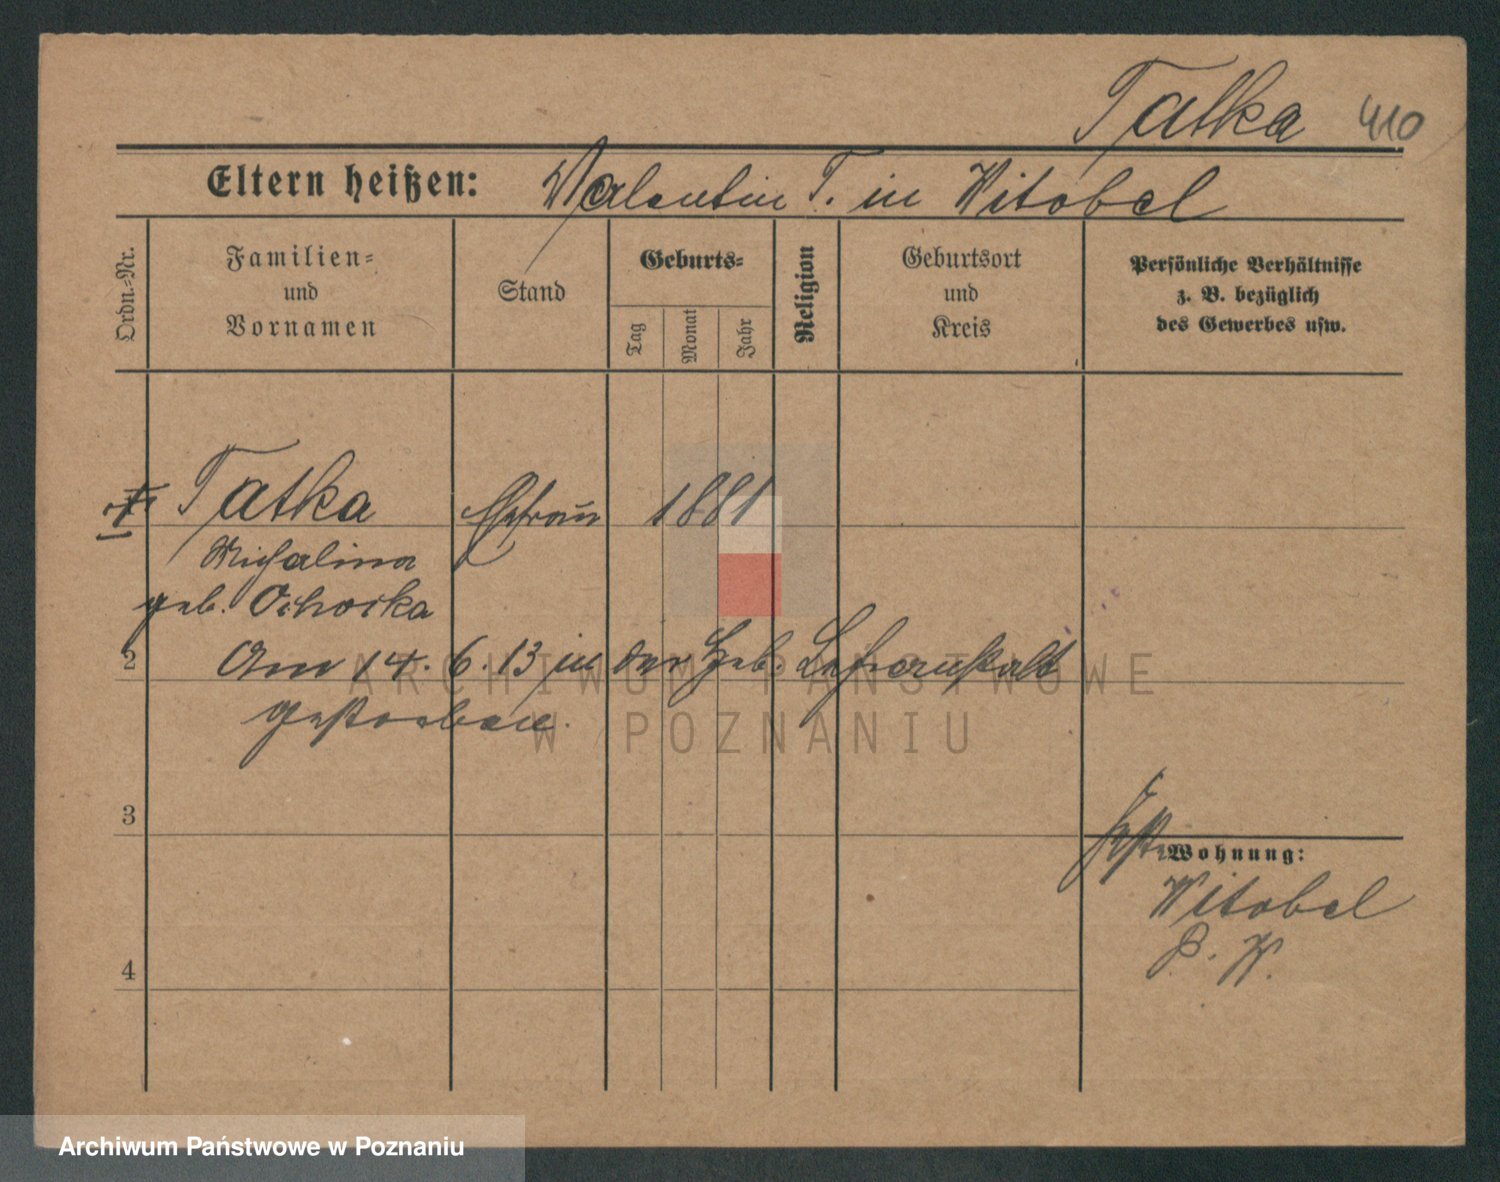 Tatka 410
Eltern heißen: Valentin T. in Witobel
Ordn.-Nr.
Familien-
und
Vornamen
Stand
Geburts-
Tag
Monat
Jahr
Religion
Geburtsort
und
Kreis
Persönliche Verhältnisse
z. B. bezüglich
des Gewerbes usw.
Tatka Ehefrau 1881
Michalina
geb. Ochocka
2 Am 14. 6. 13 in der Heb. Lehranstalt
gestorben.
ARCHIWUM PAŃSTWOWE
W POZNANIU
3
Wohnung:
Witobel
P. W.
4
Archiwum Państwowe w Poznaniu